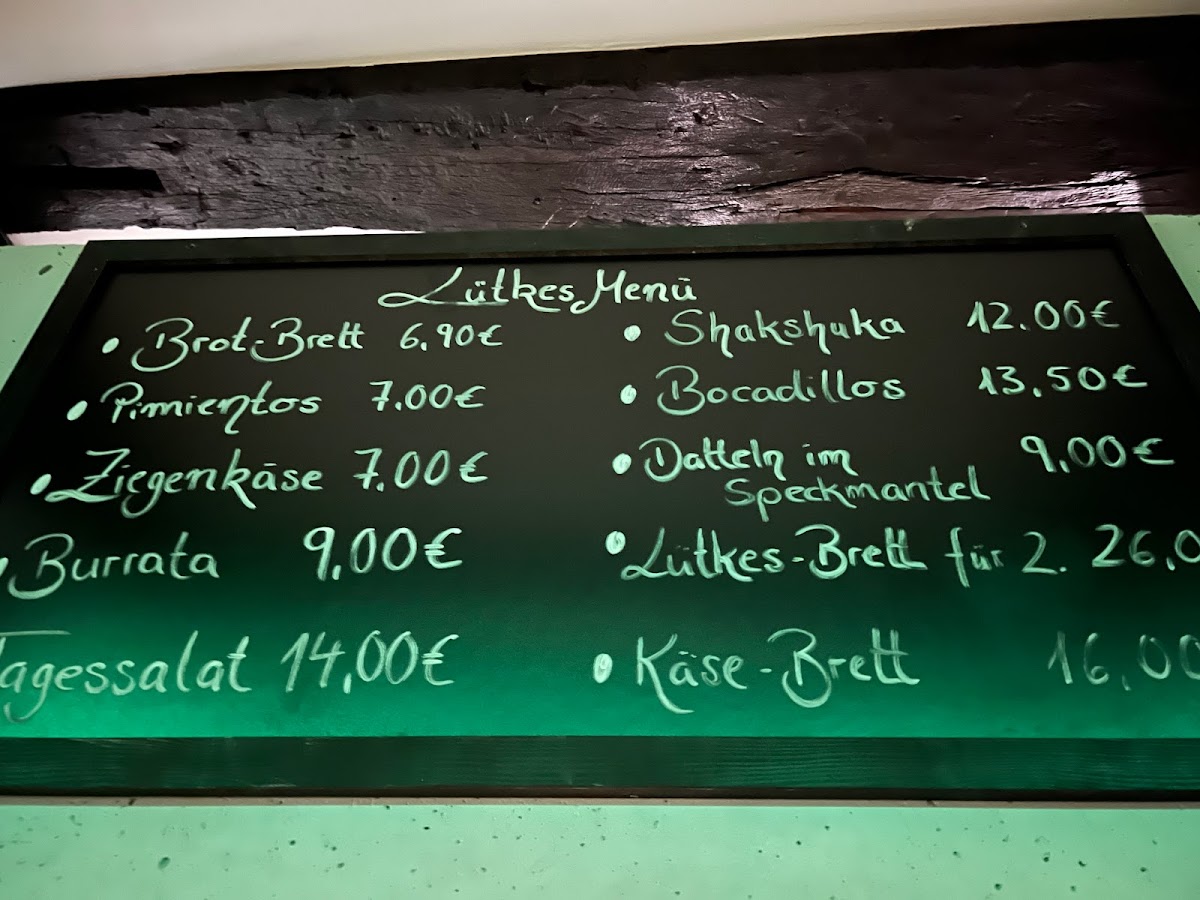 Lütkes Menü
• Brot-Brett 6,90€
• Pimientos 7,00€
• Ziegenkäse 7,00€
• Burrata 9,00€
Tagessalat 14,00€
• Shakshuka 12.00€
• Bocadillos 13,50€
• Datteln im 9,00€
Speckmantel
• Lütkes-Brett für 2. 26,0
• Käse-Brett 16,00